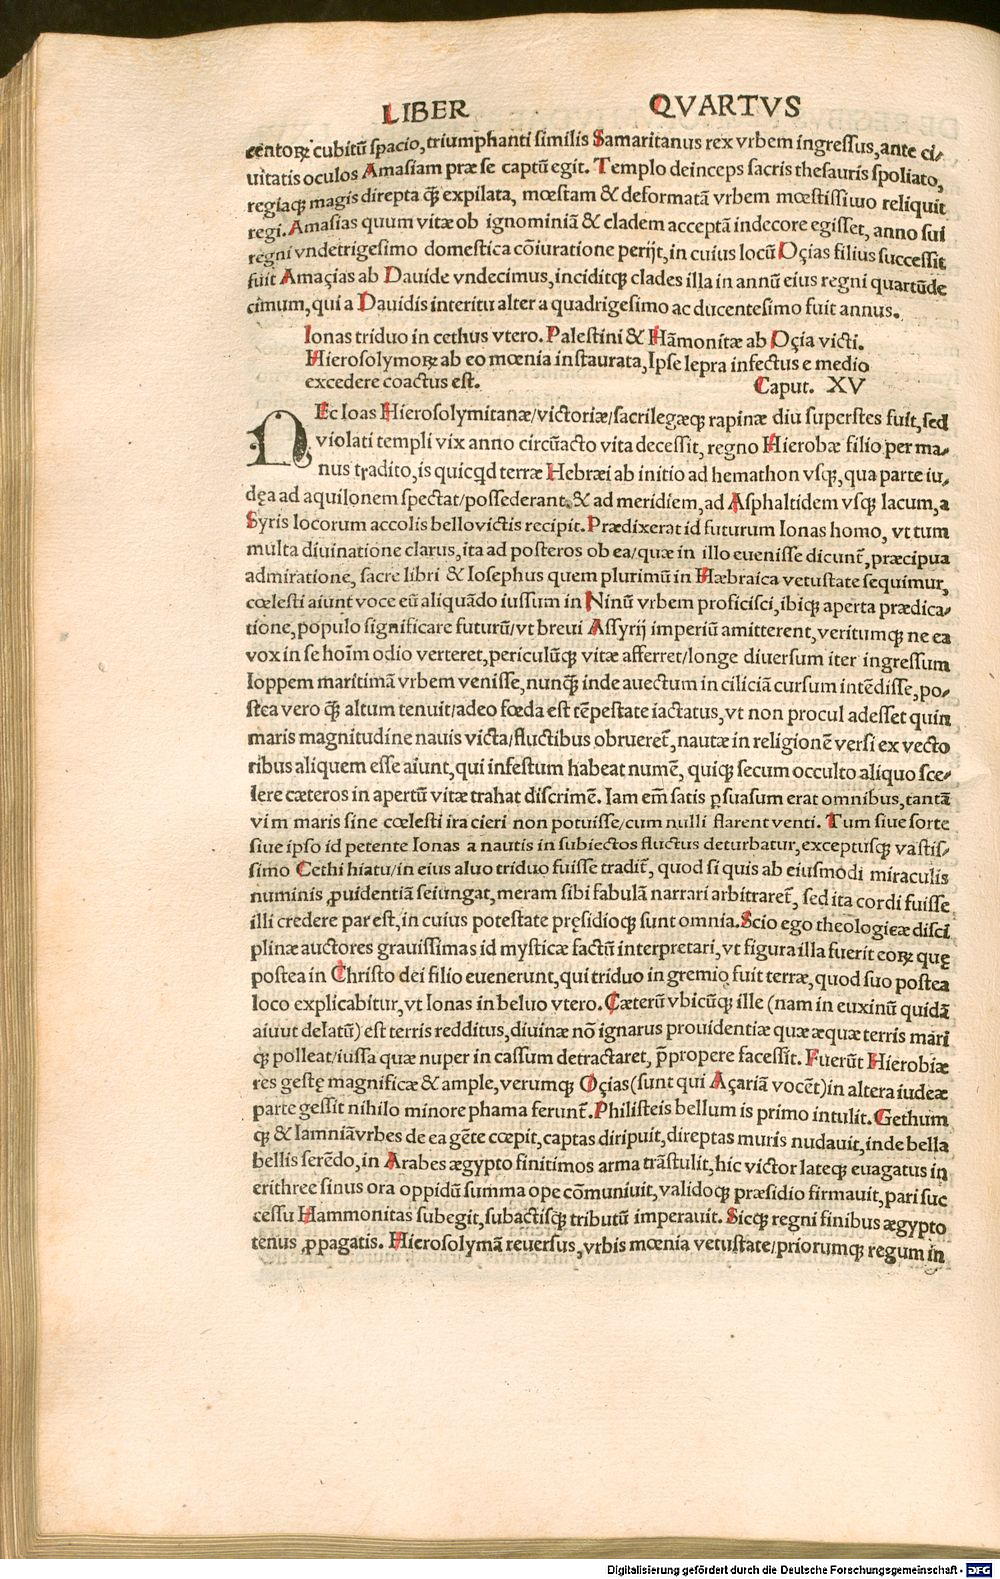 LIBER QVARTVS
centoꝝ cubitū spacio, triumphanti similis Samaritanus rex vrbem ingressus, ante ci/
uitatis oculos Amasiam præ se captū egit. Templo deinceps sacris thesauris spoliato,
regiaqꝫ magis direpta q̄ꝫ expilata, mœstam & deformatā vrbem mœstissimo reliquit
regi. Amasias quum vitæ ob ignominiā & cladem acceptā indecore egisset, anno sui
regni vndetrigesimo domestica cōiuratione perijt, in cuius locū Oçias filius successit
fuit Amaçias ab Dauide vndecimus, inciditqꝫ clades illa in annū eius regni quartūde
cimum, qui a Dauidis interitu alter a quadrigesimo ac ducentesimo fuit annus.
Ionas triduo in cethus vtero. Palestini & Hāmonitæ ab Oçia victi.
Hierosolymoꝝ ab eo mœnia instaurata, Ipse lepra infectus e medio
excedere coactus est. Caput. XV
NEc Ioas Hierosolymitanæ/victoriæ/sacrilegæqꝫ rapinæ diu superstes fuit, sed
violati templi vix anno circūacto vita decessit, regno Hierobæ filio per ma/
nus tradito, is quicqd terræ Hebræi ab initio ad hemathon vsqꝫ, qua parte iu/
dęa ad aquilonem spectat/possederant. & ad meridiem, ad Asphaltidem vsqꝫ lacum, a
Syris locorum accolis bello victis recipit. Prædixerat id futurum Ionas homo, vt tum
multa diuinatione clarus, ita ad posteros ob ea/quæ in illo euenisse dicunt̄, præcipua
admiratione, sacre libri & Iosephus quem plurimū in Hæbraica vetustate sequimur,
cœlesti aiunt voce eū aliquādo iussum in Ninū vrbem proficisci, ibiqꝫ aperta prædica/
tione, populo significare futurū/vt breui Assyrij imperiū amitterent, veritumqꝫ ne ea
vox in se hoīm odio verteret, periculūqꝫ vitæ afferret/longe diuersum iter ingressum
Ioppem maritimā vrbem venisse, nunq̄ꝫ inde auectum in ciliciā cursum intēdisse, po/
stea vero q̄ꝫ altum tenuit/adeo fœda est tēpestate iactatus, vt non procul adesset quin
maris magnitudine nauis victa/fluctibus obrueret̄, nautæ in religionē versi ex vecto
ribus aliquem esse aiunt, qui infestum habeat numē, quiqꝫ secum occulto aliquo sce/
lere cæteros in apertū vitæ trahat discrimē. Iam em̄ satis ꝑsuasum erat omnibus, tantā
vim maris sine cœlesti ira cieri non potuisse/cum nulli flarent venti. Tum siue sorte
siue ipso id petente Ionas a nautis in subiectos fluctus deturbatur, exceptusqꝫ vastis/
simo Cethi hiatu/in eius aluo triduo fuisse tradit̄, quod si quis ab eiusmodi miraculis
numinis ꝓuidentiā seiungat, meram sibi fabulā narrari arbitraret̄, sed ita cordi fuisse
illi credere par est, in cuius potestate pręsidioqꝫ sunt omnia. Scio ego theologicæ disci
plinæ auctores grauissimas id mysticæ factū interpretari, vt figura illa fuerit eoꝝ quę
postea in Christo dei filio euenerunt, qui triduo in gremio fuit terræ, quod suo postea
loco explicabitur, vt Ionas in beluo vtero. Cæterū vbicūqꝫ ille (nam in euxinū quidā
aiuut delatū) est terris redditus, diuinæ nō ignarus prouidentiæ quæ æquæ terris mari
qꝫ polleat/iussa quæ nuper in cassum detractaret, p̄propere facessit. Fuerūt Hierobiæ
res gestę magnificæ & ample, verumqꝫ Oçias (sunt qui Açariā vocēt) in altera iudeæ
parte gessit nihilo minore phama ferunt̄. Philisteis bellum is primo intulit. Gethum
qꝫ & Iamniā vrbes de ea gēte cœpit, captas diripuit, direptas muris nudauit, inde bella
bellis serēdo, in Arabes ægypto finitimos arma trāstulit, hic victor lateqꝫ euagatus in
erithree sinus ora oppidū summa ope cōmuniuit, validoqꝫ præsidio firmauit, pari suc
cessu Hammonitas subegit, subactisqꝫ tributū imperauit. Sicqꝫ regni finibus ægypto
tenus ꝓpagatis. Hierosolymā reuersus, vrbis mœnia vetustate/priorumqꝫ regum in
Digitalisierung gefördert durch die Deutsche Forschungsgemeinschaft - DFG